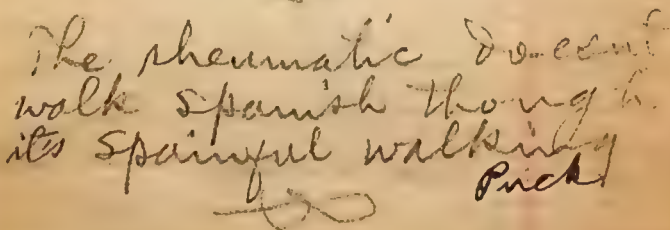 The rheumatic doesn't
walk spanish though
it's spainful walking
Puck